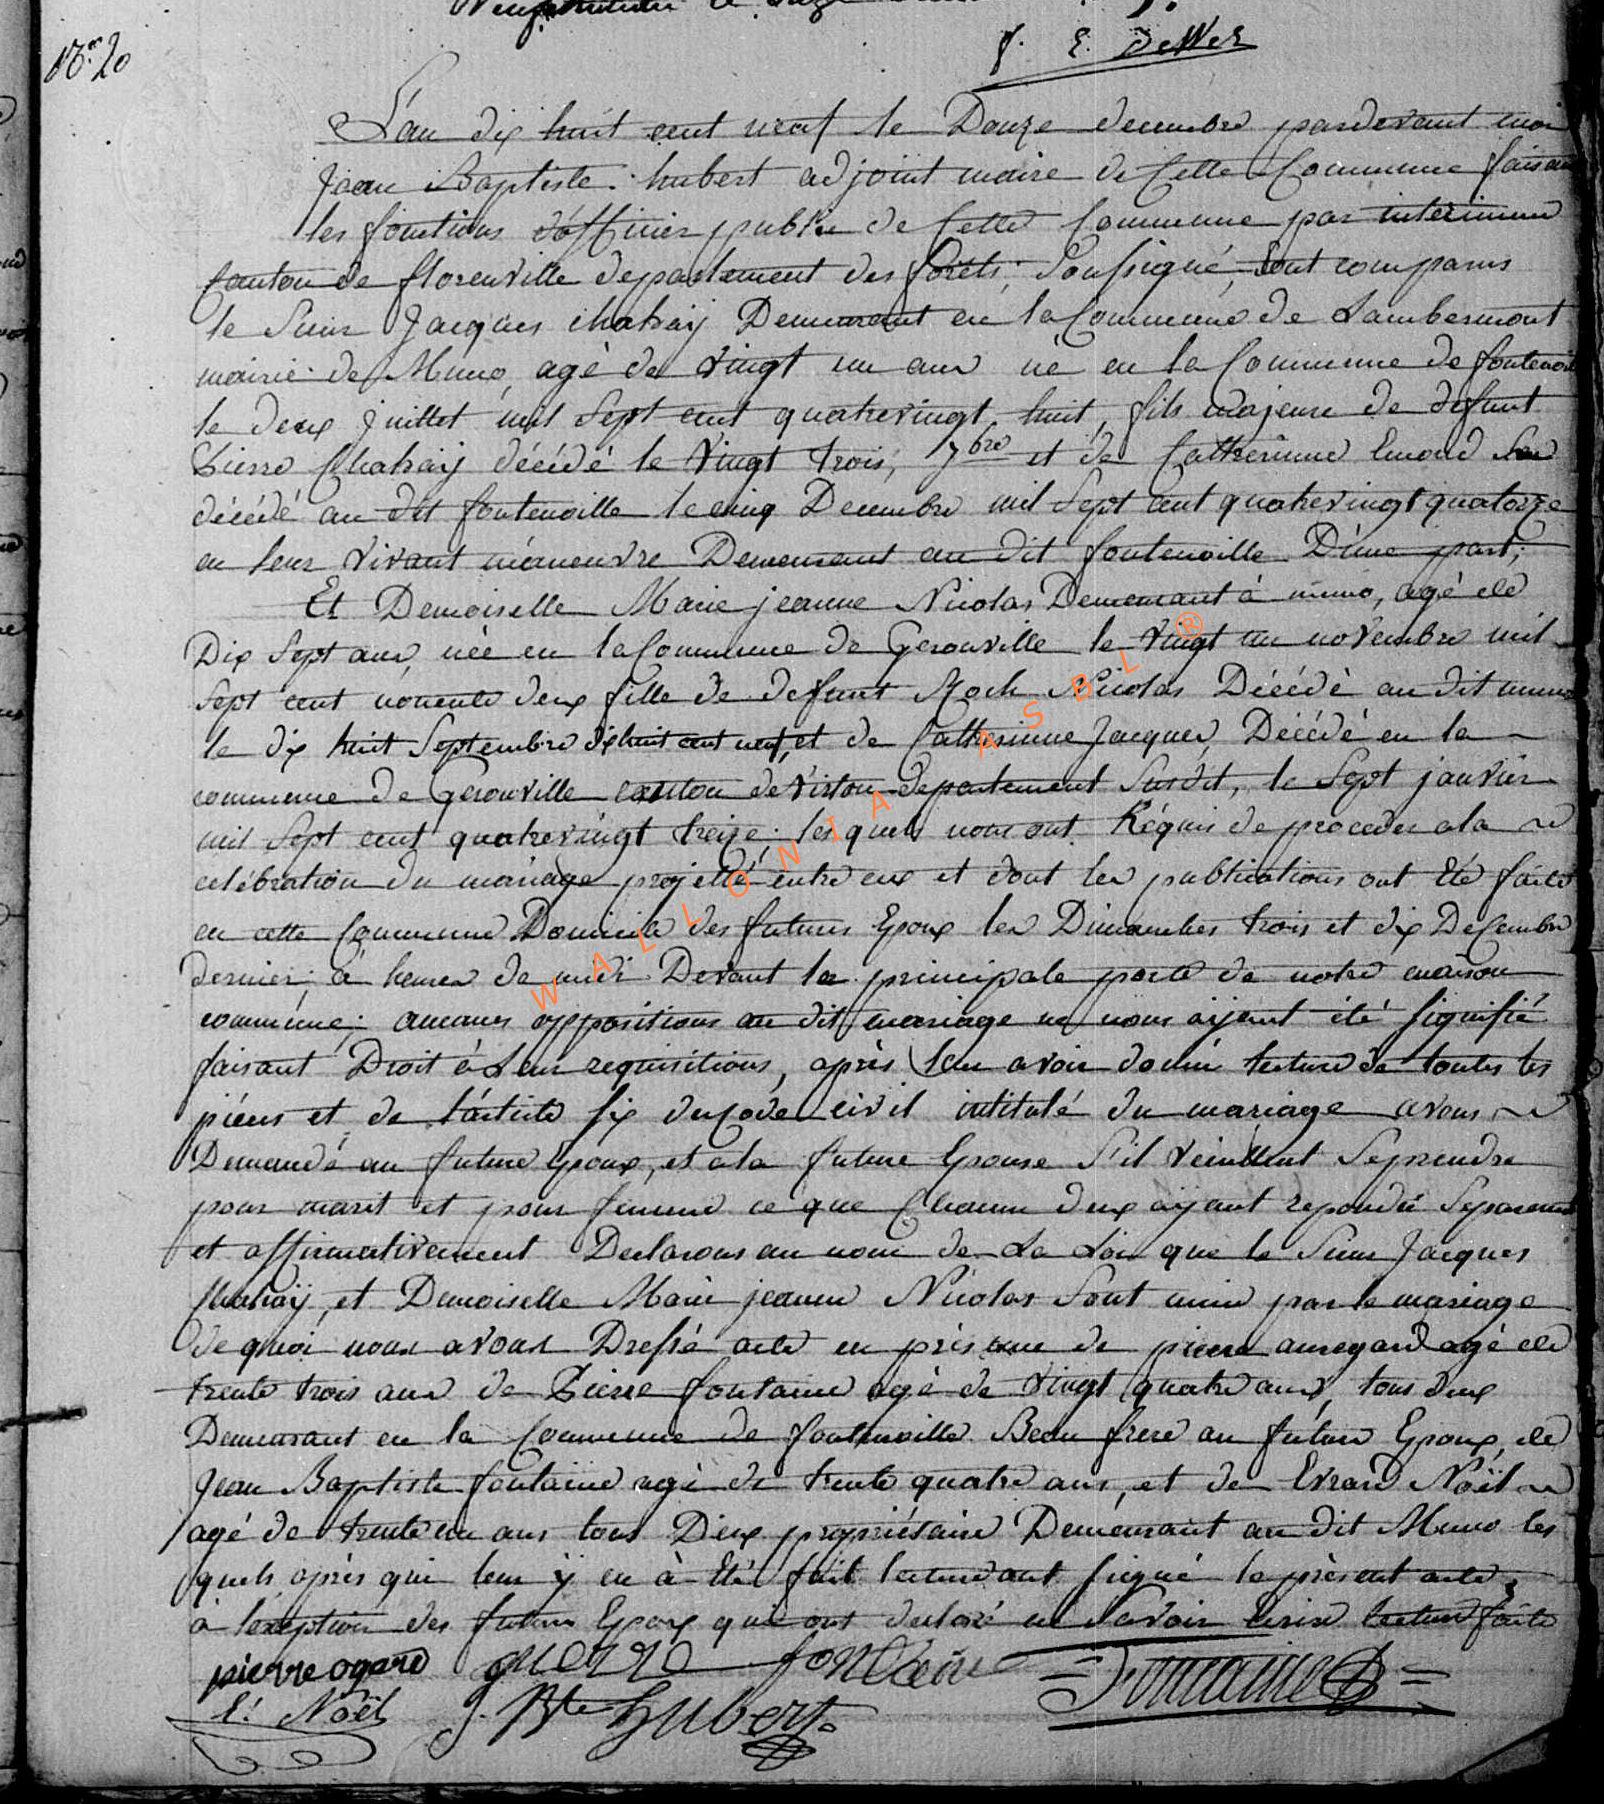 f. E. DeWez
N.º 20
L'an dix huit cent neuf le Douze decembre pardevant moi
Jean Baptiste hubert adjoint maire de Cette Commune faisant
les fonctions d'officier public de Cette Commune par interimme
Canton de florenville departement des forêts; Soussigné, Sont comparus
le Sieur Jacques chatraij Demeurant en la Commune de Lambermont
mairie de Muno, agé de vingt un ans né en la Commune de fontenoil
le deux juillet mil sept cent quatrevingt huit, fils majeure de defunt
Pierre Chatraij décédé le vingt trois, 7bre et de Catherinne Emond
décédé au dit fontenoille le cinq Decembre mil Sept cent quatrevingt quatorze
en leur vivant manoeuvre Demeurant au dit fontenoille D'une part;
Et Demoiselle Marie jeanne Nicolas Demeurant à muno, agé de
Dix Sept ans, née en la Commune de Gerouville le vingt un novembre mil
sept cent nonente deux fille de defunt Roch Nicolas Décédé au dit muno
le dix huit Septembre dixhuit cent neuf, et de Catherinne Jacques, Décédé en la
commune de Gerouville canton de virton departement Susdit, le Sept janvier
mil sept cent quatrevingt treize; les quels nous ont Réquis de proceder a la
celébration du mariage projetté entre eux et dont les publications ont été faite
en cette Commune Domicile des futures Epoux les Dimanches trois et dix Decembre
dernier; à heures de midi Devant la principale porte de notre maison
commune; aucunes oppositions au dit mariage ne nous aijant été signifié
faisant Droit à Leur requisitions, après leur avoir donné lecture de toutes les
pièces et de l'article six du Code civil intitulé du mariage avons
Demandé au future Epoux, et a la future Epouse S'il veuillent Se prendre
pour marit et pour femme ce que Chacun deux aijant repondu Separement
et affirmativement Declarons au nom de La Loi que le Sieur Jacques
Chatraij, et Demoiselle Marie jeanne Nicolas Sont unie par le mariage
de quoi nous avons Dressé acte en présence de pierre auregard agé de
trente trois ans de Pierre fontaine agé de vingt quatre ans, tous deux
Demeurant en la Commune de fontenoille Beau frere au future Epoux, de
Jean Baptiste fontaine agé de trente quatre ans, et de Evrard Noël
agé de trente un ans tous Deux propriétaire Demeurant au dit Muno les
quels après qui leur ÿ en à été fait lecture ont signé le présent acte,
à l'exception des futures Epoux qui ont declaré ne Savoir Ecrire lecture faite
pierre ogard fontaine Fontaine
E: Noël J. Bte Hubert
WALLONIA ASBL ®